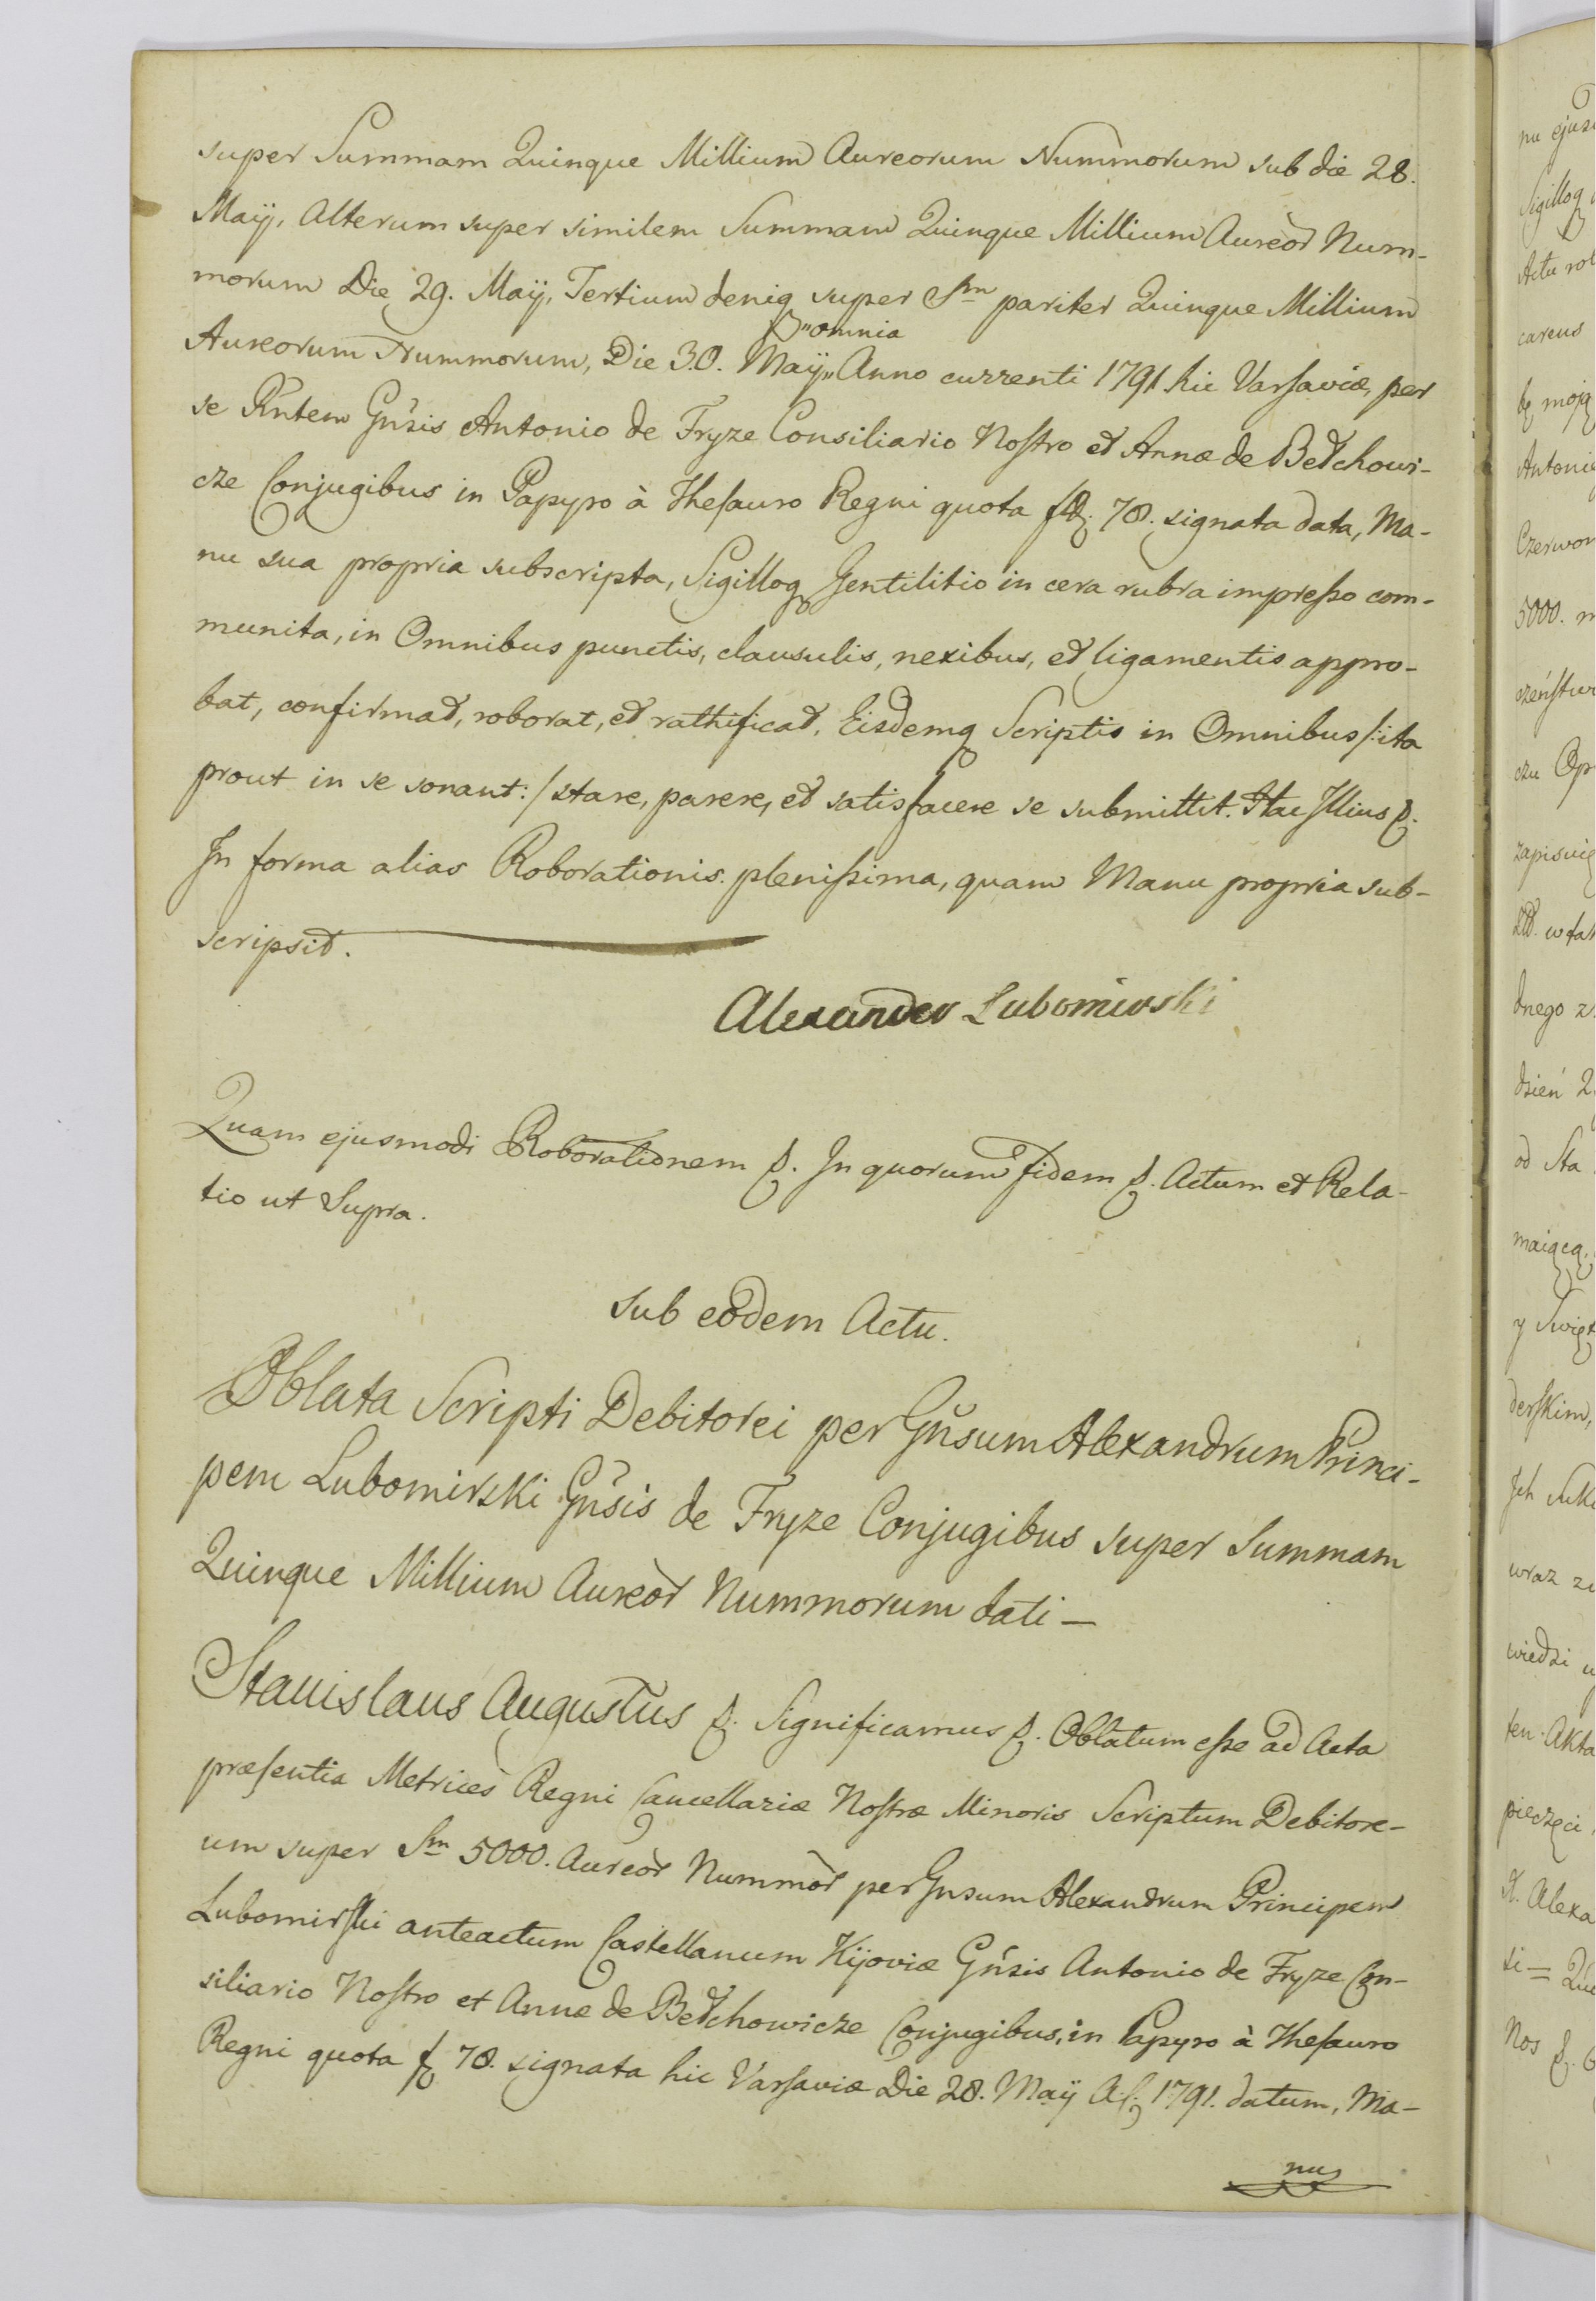 super Summam Quinque Millium Aureorum Nummorum sub die 28.
Maÿ, Alterum super similem Summam Quinque Millium Aureor̀ Num-
morum Die 29. Maÿ, Tertium deniq super Sm pariter Quinque Millium
"omnia
Aureorum Nummorum, Die 30. Maÿ" Anno currenti 1791 hic Varsaviæ, per
se Pn̄tem Gn̄sis Antonio de Fryze Consiliario Nostro et Annæ de Bełchowi-
cze Conjugibus in Papyro à Thesauro Regni quota 78. signata data, Ma-
nu sua propria subscripta, Sigilloq Gentilitio in cera rubra impresso com-
munita, in Omnibus punctis, clausulis, nexibus, et ligamentis appro-
bat, confirmat, roborat, et rathificat, Eisdemq Scriptis in Omnibus /:ita
prout in se sonant:/ stare, parere, et satisfacere se submittit. Hac Illius
In forma alias Roborationis plenissima, quam Manu propria sub-
scripsit.
Alexander Lubomirski
Quam ejusmodi Roborationem In quorum fidem Actum et Rela-
tio ut Supra.
Sub eodem Actu.
Oblata Scripti Debitorei per Gn̄sum Alexandrum Princi-
pem Lubomirski Gn̄sis de Fryze Conjugibus super Summam
Quinque Millium Aureor̀ Nummorum dati —
Stanislaus Augustus Significamus Oblatum esse ad Acta
præsentia Metrices Regni Cancellariæ Nostræ Minoris Scriptum Debitore-
um super Sm 5000. Aureor̀ Nummor̀ per Gnsum Alexandrum Principem
Lubomirski anteactum Castellanum Kijoviæ Gn̄sis Antonio de Fryze Con-
siliario Nostro et Annæ de Bełchowicze Conjugibus, in Papyro à Thesauro
Regni quota 78. signata hic Varsaviæ Die 28. Maÿ 1791. datum, Ma-
nu